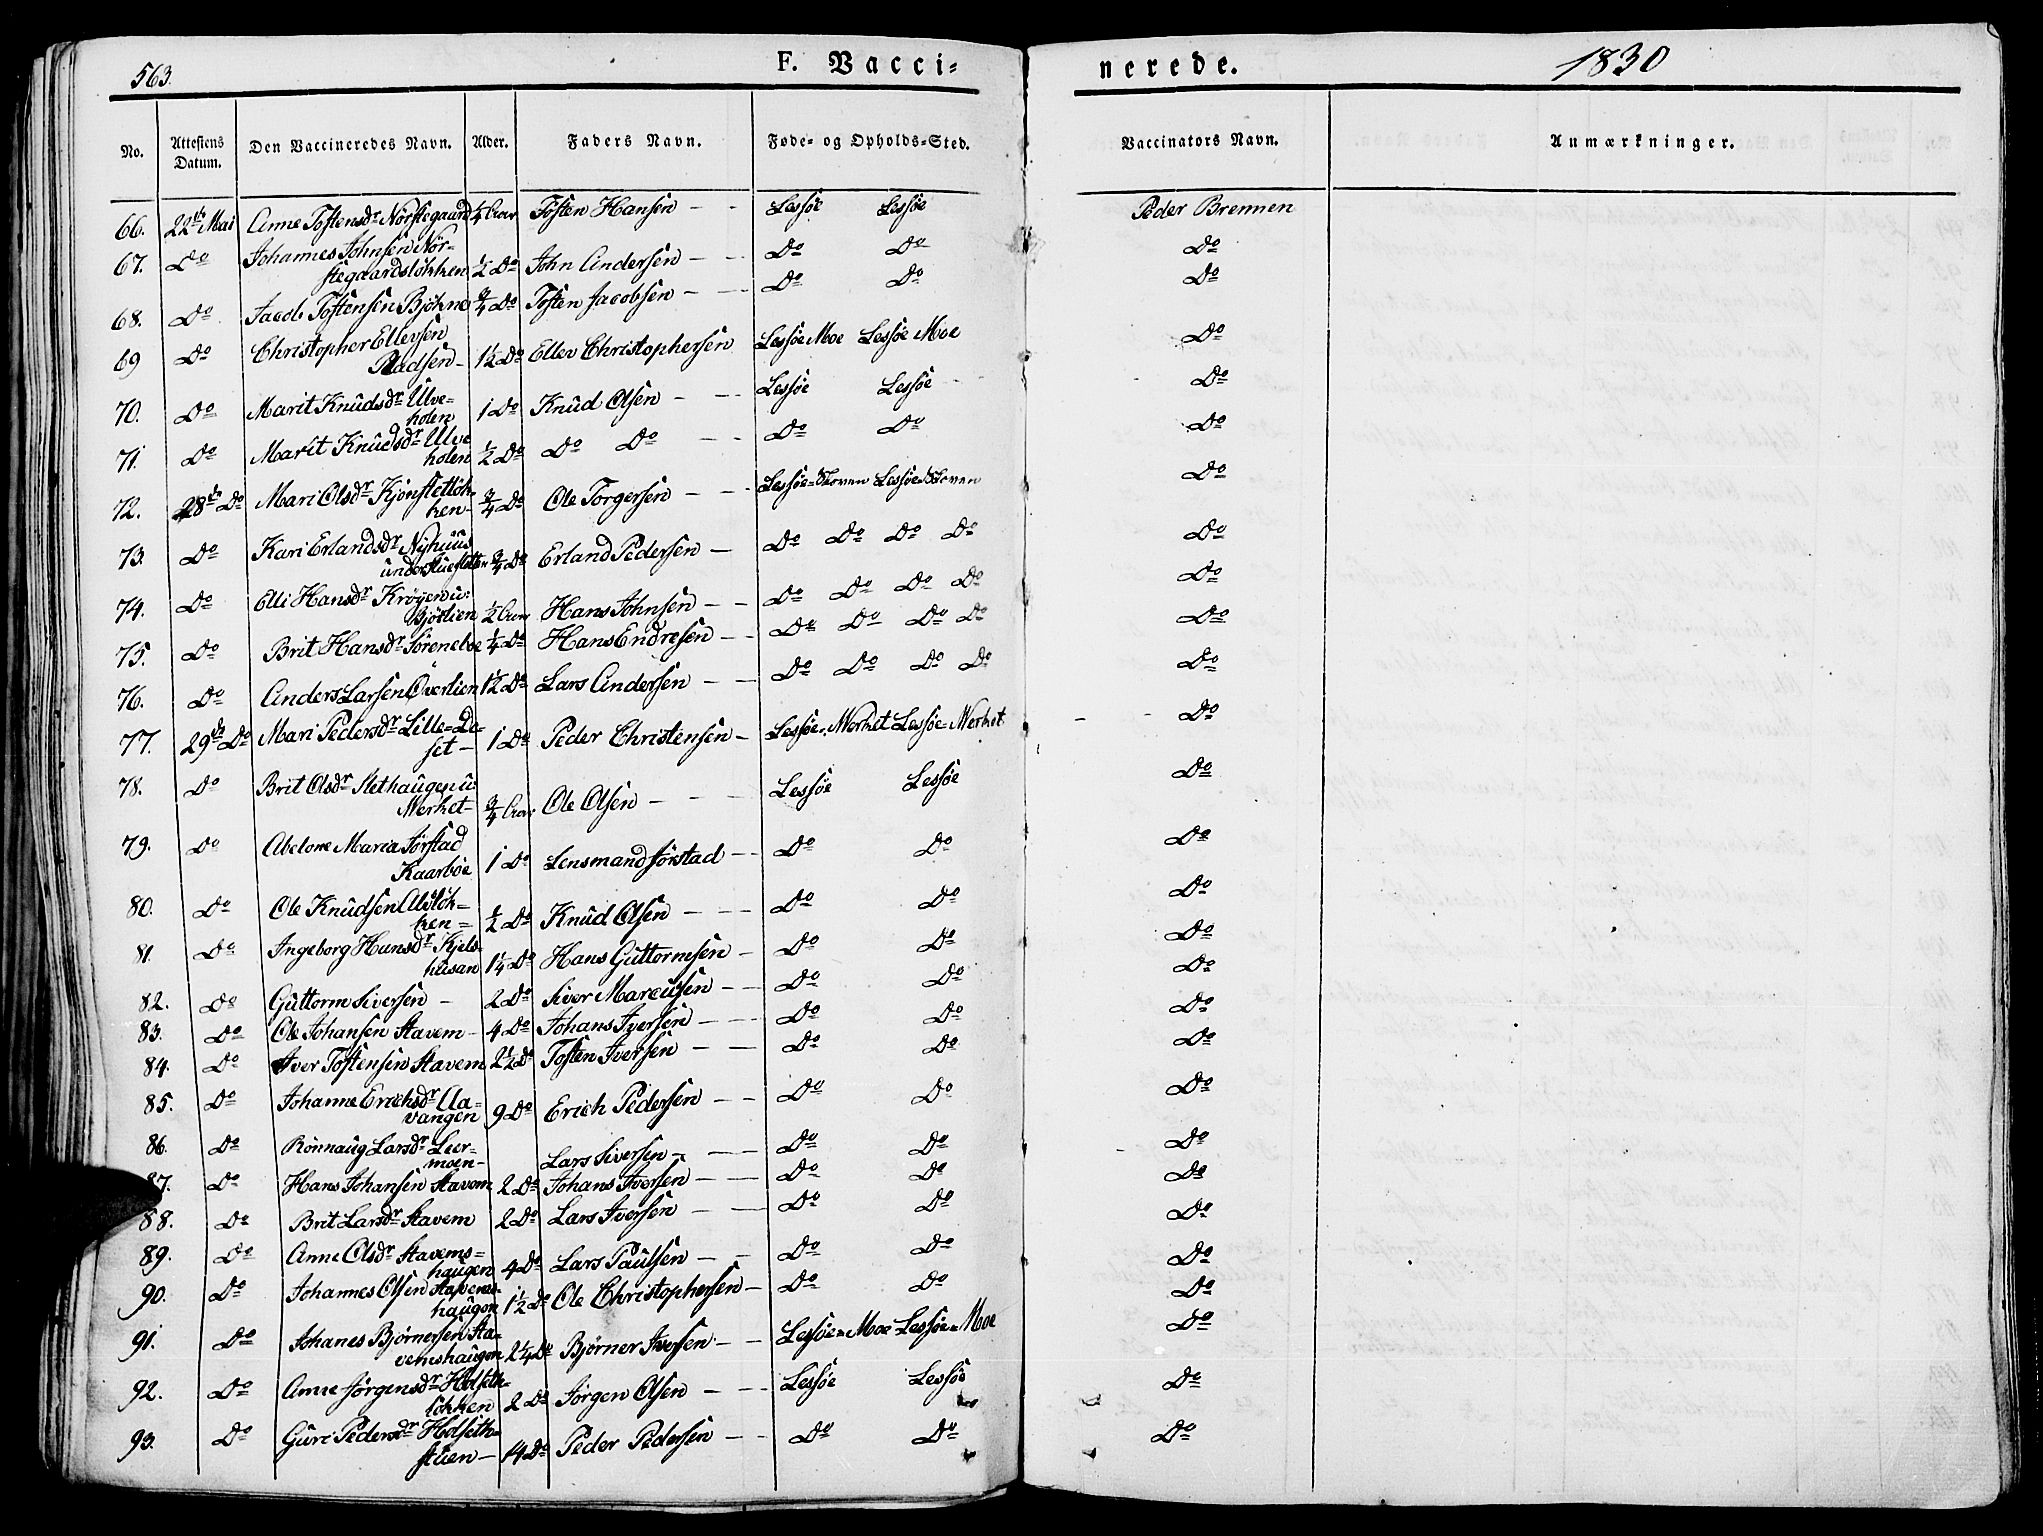 563.
F. Vacci-
nerede.
1830
No. Attestens Datum. Den Vaccineredes Navn. Alder. Faders Navn. Føde- og Opholds-Sted. Vaccinators Navn. Anmærkninger.
66. 22de Mai Anne Tostensdr Nørstegaard ¼ Aar Tosten Hansen - - Lessøe Lessøe Peder Brennen
67. Do Johannes Johnsen Nør-
stegaardsløkken ½ Do John Andersen - - Do Do Do
68. Do Jacob Tostensen Bjøkne ¾ Do Tosten Jacobsen - - Do Do Do
69 Do Christopher Ellevsen
Radsen - 1½ Do Ellev Christophersen Lessøe Moe Lessøe Moe Do
70. Do Marit Knudsdr Ulve-
holen 1 Do Knud Olsen - - Lessøe Lessøe Do
71. Do Marit Knudsdr Ulve
holen ½ Do Do Do - - Do Do Do
72. 28de Do Mari Olsdr Kjønstetløk-
ken - ¾ Do Ole Torgersen - - Lessøe-Skoven Lessøe-Skoven Do
73. Do Kari Erlandsdr Nyhuus
under ¾ Do Erland Pedersen - Do Do Do Do Do
74. Do Elli Hansdr Krøyen u:
Bjørlien ½ Aar Hans Johnsen - - Do Do Do Do Do
75. Do Brit Hansdr Søreneboe ¼ Do Hans Endresen - - Do Do Do Do Do
76. Do Anders Larsen Øverlien 1½ Do Lars Andersen - - Do Do Do Do Do
77. 29de Do Mari Pedersdr Lille-De-
set - 1 Do Peder Christensen - Lessøe-Merket Lessøe-Merket Do
78. Do Brit Olsdr Slethaugen u
Merket - ¾ Aar Ole Olsen - - - Lessøe Lessøe Do
79. Do Abelone Maria Sørstad
Kaarbøe 1 Do Lensmand Sørstad - - Do Do Do
80. Do Ole Knudsen
ken - ½ Do Knud Olsen - - - Do Do Do
81. Do Ingeborg Hansdr Kjels-
husan 1¼ Do Hans Guttormsen - Do Do Do
82. Do Guttorm Siversen - 2 Do Siver Marcusen - - Do Do Do
83. Do Ole Johansen Stavem - 4 Do Johans Iversen - - Do Do Do
84. Do Iver Tostensen Stavem 2½ Do Tosten Iversen - - Do Do Do
85. Do Johanne Erichsdr Aa-
vangen 9 Do Erich Pedersen - - Do Do Do
86. Do Rønnaug Larsdr Leer-
moen - Lars Siversen - - Do Do Do
87. Do Hans Johansen Stavem 2 Do Johans Iversen - - Do Do Do
88. Do Brit Larsdr Stavem 2 Do Lars Iversen - - Do Do Do
89. Do Anne Olsdr Stavems-
haugen 4 Do Lars Paulsen - - Do Do Do
90. Do Johannes Olsen Stavems-
haugen 1½ Do Ole Christophersen - Do Do Do
91. Do Johanes Bjørnersen Sta-
vemshaugen 2¼ Do Bjørner Iversen - - Lessøe-Moe Lessøe-Moe Do
92. Do Anne Jørgensdr Holseth-
løkken 2 Do Jørgen Olsen - - Lessøe Lessøe Do
93. Do Guri Pedersdr Holseth-
stuen - 14 Do Peder Pedersen - - Do Do Do